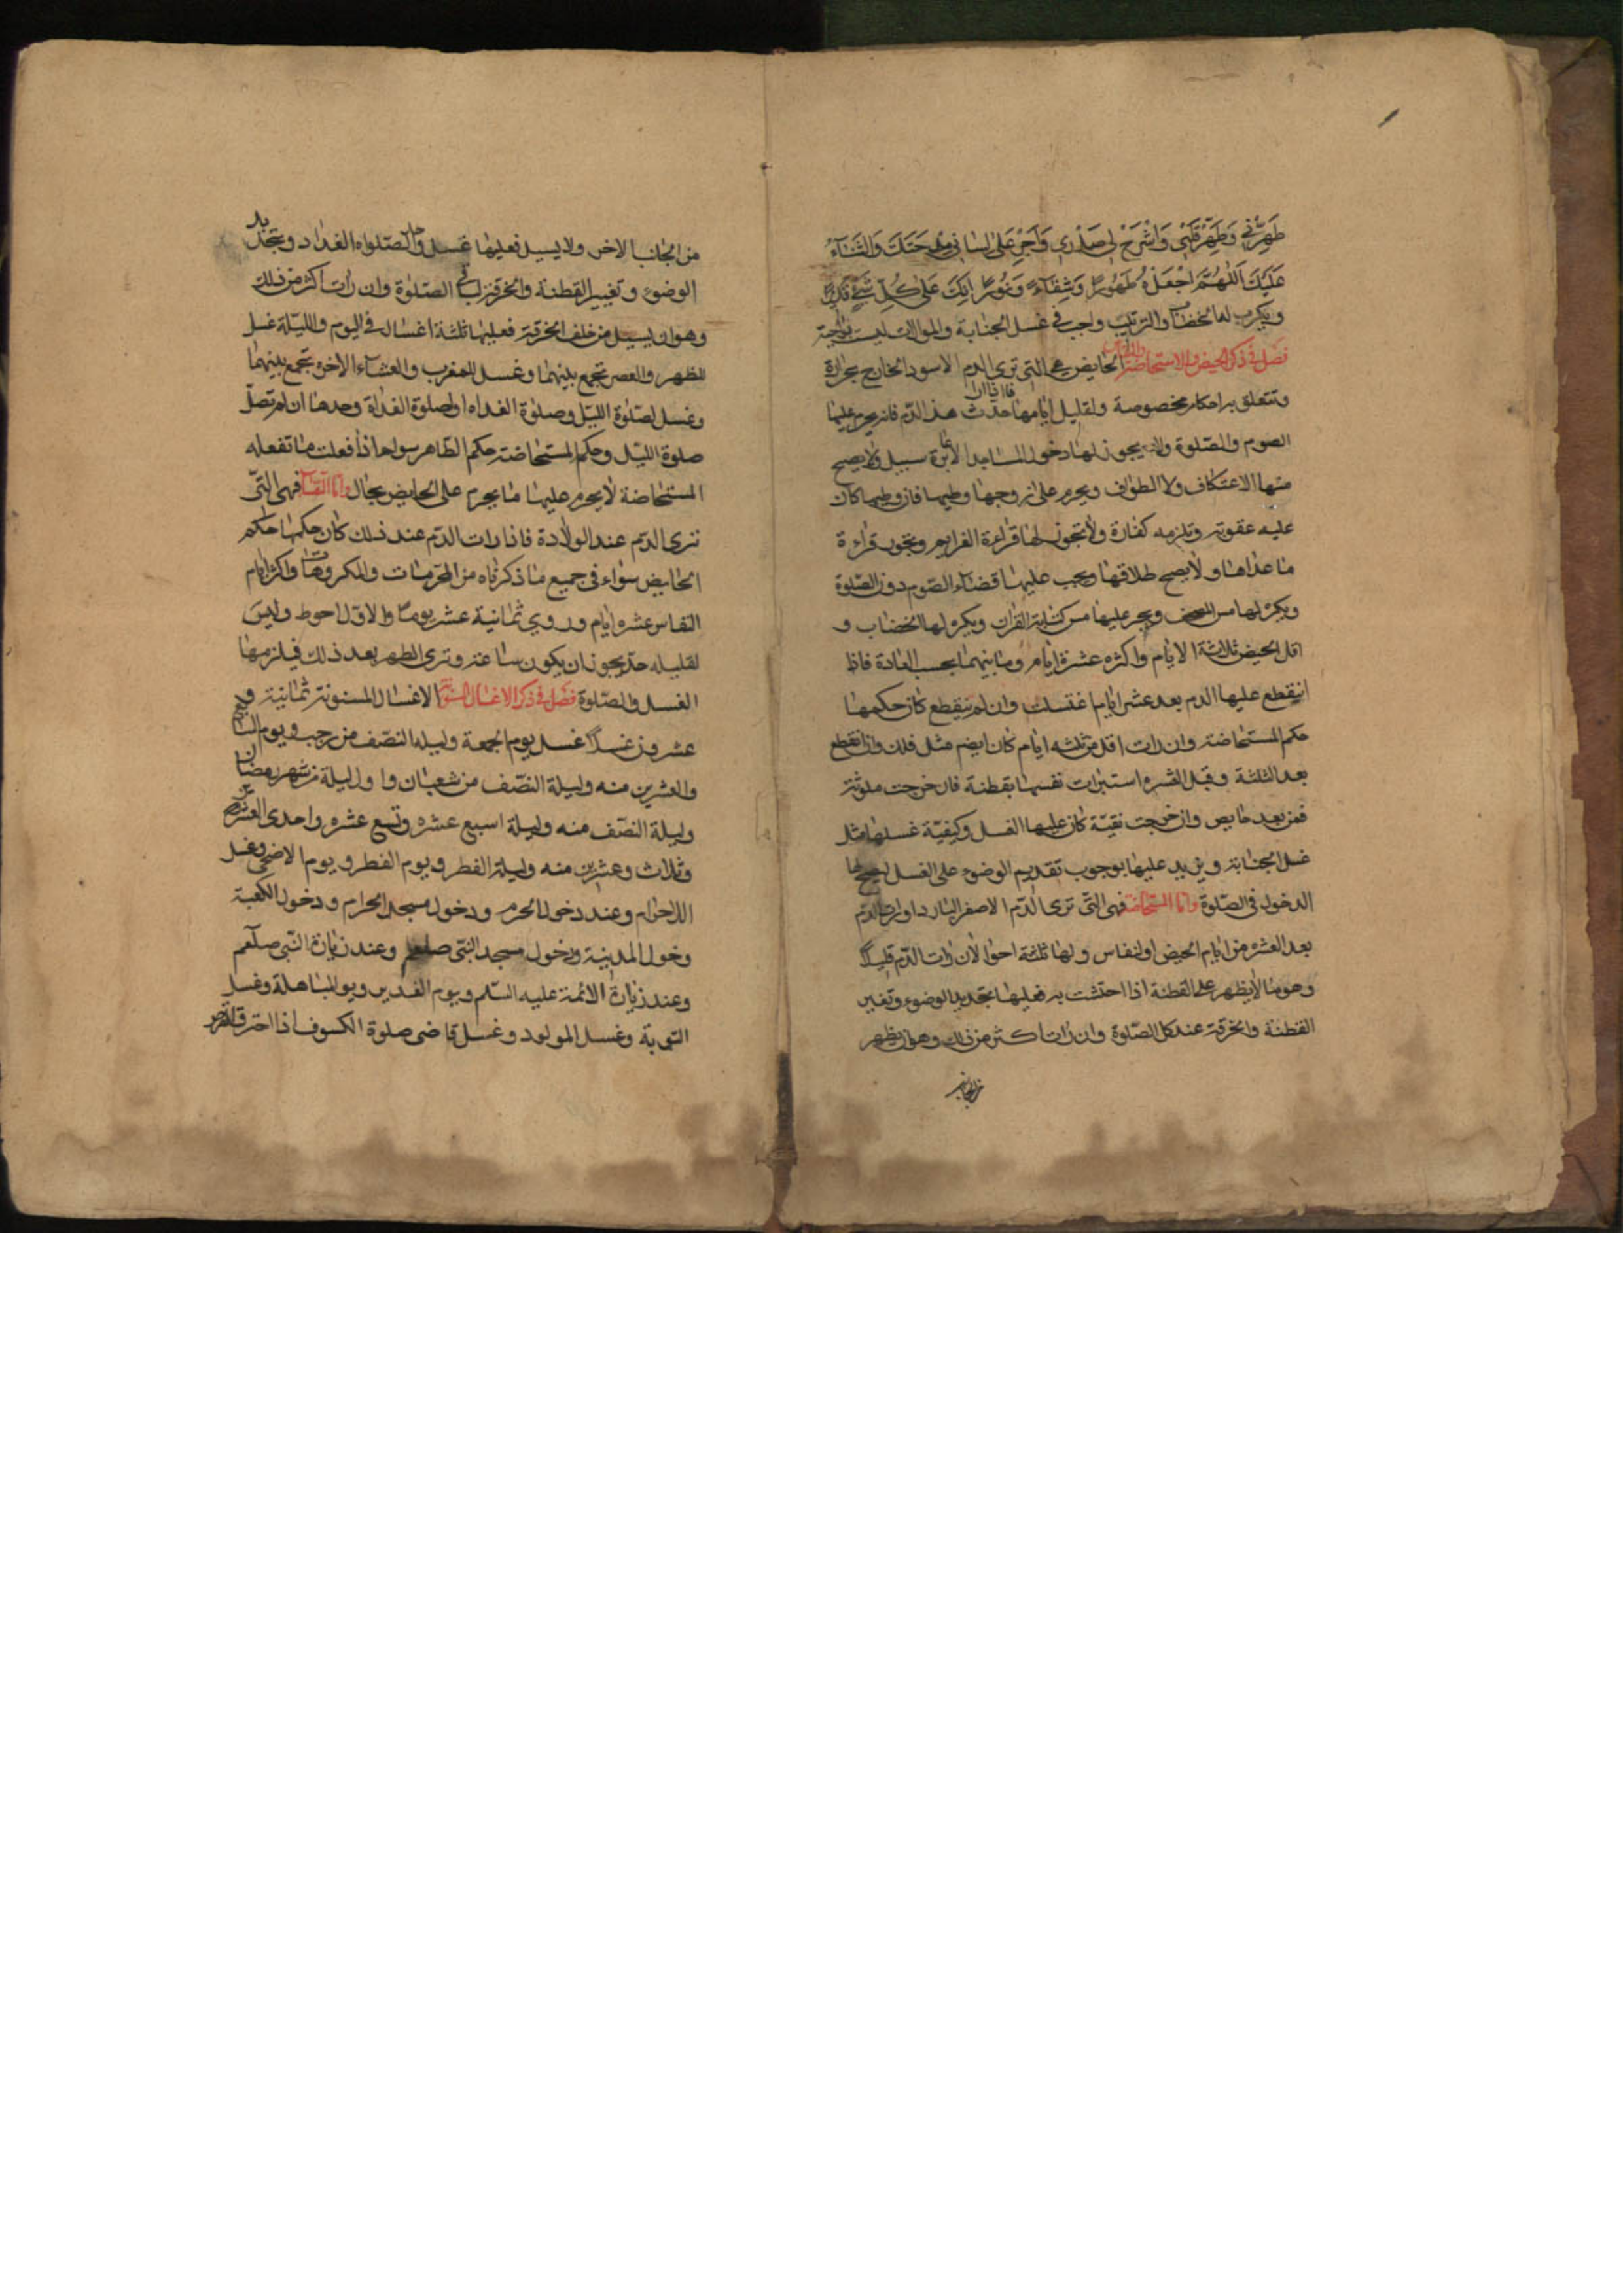 طَهِّرْنِي وَطَهِّرْ قَلْبِي وَاشْرَحْ لِي صَدْرِي وَاَجْرِ عَلىٰ لِسٰانِي مِدْحَتَكَ وَالثَّنٰآءَ
عَلَيْكَ اَللّٰهُمَّ اجْعَلْهُ لِي طَهُورًا وَشِفٰآءً وَنُورًا اِنَّكَ عَلىٰ كُلِّ شَيْءٍ قَدِيرٌ
ويكره لها الخضاب والترتيب واجب في غسل الجنابة والموالات ليست بواجبة
فصل في ذكر الحيض والاستحاضة والنفاس الحايض هي التي ترى الدم الاسود الخارج بحرارة
وتتعلق به احكام مخصوصة ولقليل ايامها حد فاذا رات هذ الدّم فانه يحرم عليها
الصوم والصّلوة ولا يجوز لها دخول المساجد الا عابرة سبيل ولا يصح
منها الاعتكاف ولا الطواف ويحرم على زوجها وطيها فان وطيها كان
عليه عقوبة وتلزمه كفارة ولا تجوز لها قراءة العزايم ويجوز قراءة
ما عداها ولا يصح طلاقها ويجب عليها قضاء الصّوم دون الصّلوة
ويكره لها مس المصحف ويحرم عليها مس كتابة القران ويكره لها الخضاب و
اقل الحيض ثلاثة الايام واكثره عشرة ايام وما بينهما بحسب العادة فاذا
انقطع عليها الدم بعد عشر ايام اغتسلت وان لم ينقطع كان حكمها
حكم المستحاضة وان رات اقل من ثلثه ايام كان ايضم مثل ذلك وان انقطع
بعد الثلثة وقبل العشره استبرات نفسها بقطنة فان خرجت ملوثة
فهي بعد حايص وان خرجت نقيّة كان عليها الغسل وكيفيّة غسلها مثل
غسل الجنابة ويزيد عليها بوجوب تقديم الوضوء على الغسل ليصح لها
الدخول في الصّلوة وامّا المستحاضة فهي التّي ترى الدّم الاصفر البارد او رات الدّم
بعد العشره من ايام الحيض او النفاس ولها ثلثة احوال ان رات الدّم قليلًا
وهو ما لا يظهر على القطنة اذا احتشت به فعليها تجديد الوضوء وتغيير
القطنة والخرقة عند كل الصّلوة وان رات اكثر من ذلك وهو ان يظهر
من الجانب
من الجانب الاخر ولا يسيل فعليها غسل واحد لصّلواه الغداد وتجديد
الوضوء وتغيير القطنة والخرقة لباقي الصّلوة وان رات اكثر من ذلك
وهو ان يسيل من خلف الخرقة فعليها ثلثة اغسال في اليوم والليلة غسل
للظهر والعصر تجمع بينهما وغسل للمغرب والعشاء الاخرة تجمع بينهما
وغسل لصّلوة الليّل وصلوة الغداه او لصلوة الغداة وحدها ان لم تصلّ
صلوة الليّل وحكم المستحاضة حكم الطّاهر سواء اذا فعلت ما تفعله
المستحاضة لا يحرم عليها ما يحرم على الحايض بحال وامّا النّفساء فهي التّي
ترى الدّم عند الولادة فاذا رات الدّم عند ذلك كان حكمها حكم
الحايض سواء في جميع ما ذكرناه من المحرّمات والمكروهات واكثر ايام
النفاس عشره ايام وروي ثمانية عشر يومًا والاوّل احوط وليس
لقليله حدّ يجوز ان يكون ساعة وترى الطهر بعد ذلك فيلزمها
الغسل والصّلوة فصل في ذكر الاغسال المسنونة الاغسال المسنونة ثمانية و
عشرون غسلًا غسل يوم الجمعة وليله النصّف من رجب ويوم السابع
والعشرين منه وليلة النصّف من شعبان واول ليلة من شهر رمضان
وليلة النصّف منه وليلة اسبع عشره وتسع عشره واحدى العشرين
وثلاث وعشرين منه وليلة الفطر ويوم الفطر ويوم الاضحى وغسل
الاحرام وعند دخول الحرم ودخول مسجد الحرام ودخول الكعبة
وخول المدينة ودخول مسجد النبّي صلعم وعند زيارة النبّي صلعم
وعند زيارة الائمة عليه السّلم ويوم الغدير ويوم المباهلة وغسل
التوبة وغسل المولود وغسل قاضى صلوة الكسوف اذا احترق القرص